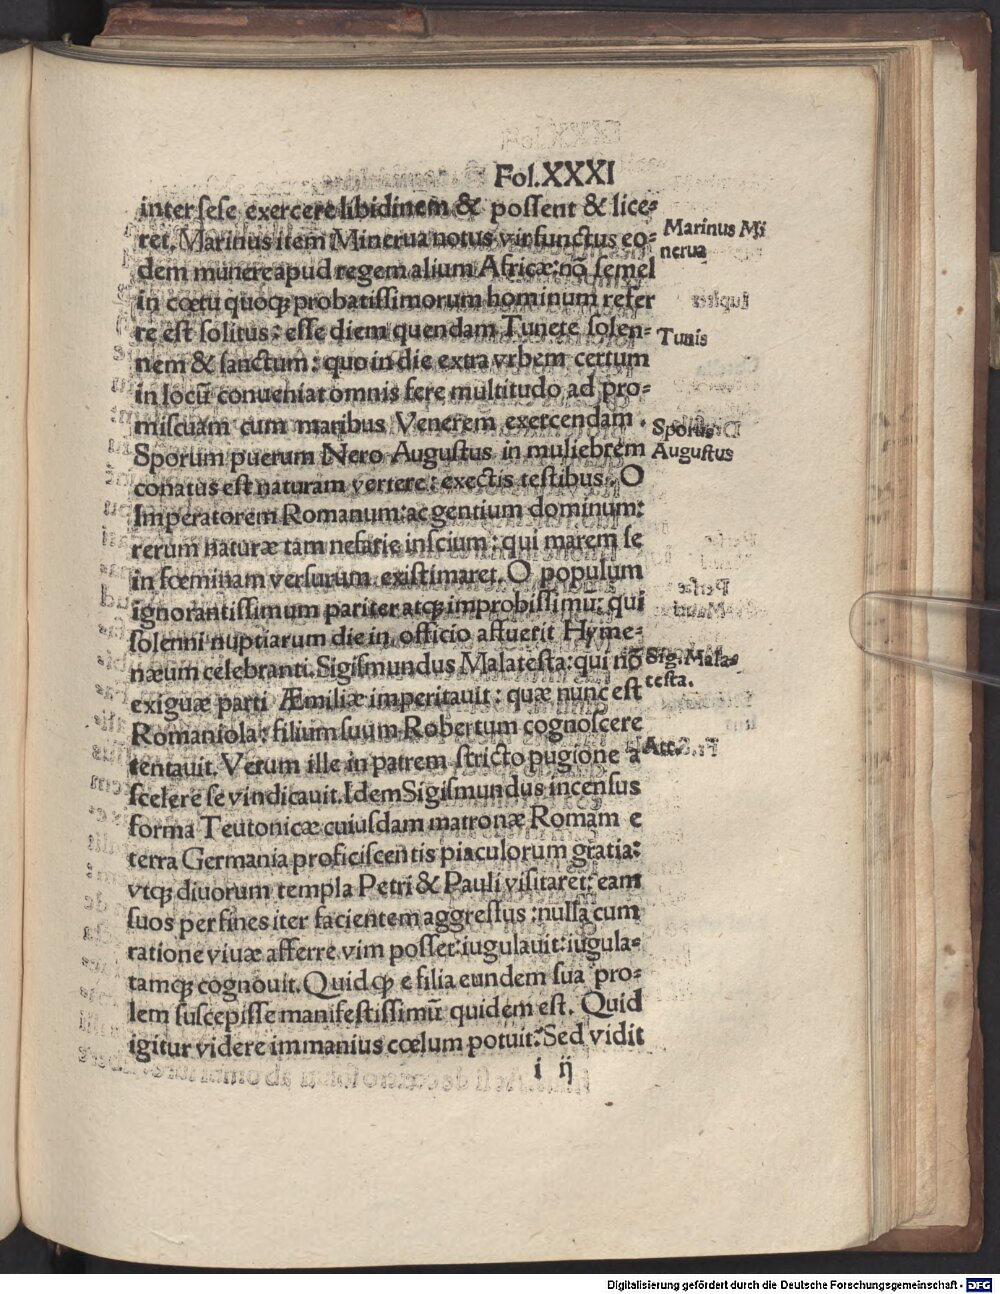 Fol.XXXI
inter sese exercere libidinem & possent & lice-
ret. Marinus item Minerua notus vir functus eo-
dem munere apud regem alium Africæ: nõ semel
in cœtu quoqꝫ probatissimorum hominum refer
re est solitus: esse diem quendam Tunete solen-
nem & sanctum: quo in die extra vrbem certum
in locũ conueniat omnis fere multitudo ad pro-
miscuam cum maribus Venerem exercendam.
Sporum puerum Nero Augustus in muliebrem
conatus est naturam vertere: exectis testibus. O
Imperatorem Romanum: ac gentium dominum:
rerum naturæ tam nefarie inscium: qui marem se
in fœminam versurum existimaret. O populum
ignorantissimum pariter atqꝫ improbissimũ: qui
solenni nuptiarum die in officio astuerit Hyme-
næum celebranti. Sigismundus Malatesta: qui nõ
exiguæ parti Æmiliæ imperitauit: quæ nunc est
Romaniola: filium suum Robertum cognoscere
tentauit. Verum ille in patrem stricto pugione a
scelere se vindicauit. Idem Sigismundus incensus
forma Teutonicæ cuiusdam matronæ Romam e
terra Germania proficiscentis piaculorum gratia:
vtqꝫ diuorum templa Petri & Pauli visitaret: eam
suos per fines iter facientem aggressus: nulla cum
ratione viuæ afferre vim posset: iugulauit: iugula-
tamqꝫ cognouit. Quid qꝫ e filia eundem sua pro-
lem suscepisse manifestissimũ quidem est. Quid
igitur videre immanius cœlum potuit? Sed vidit
i ij
Marinus Mi
nerua
Tunis
Sporus
Augustus
Sig. Mala-
testa.
Digitalisierung gefördert durch die Deutsche Forschungsgemeinschaft - DFG